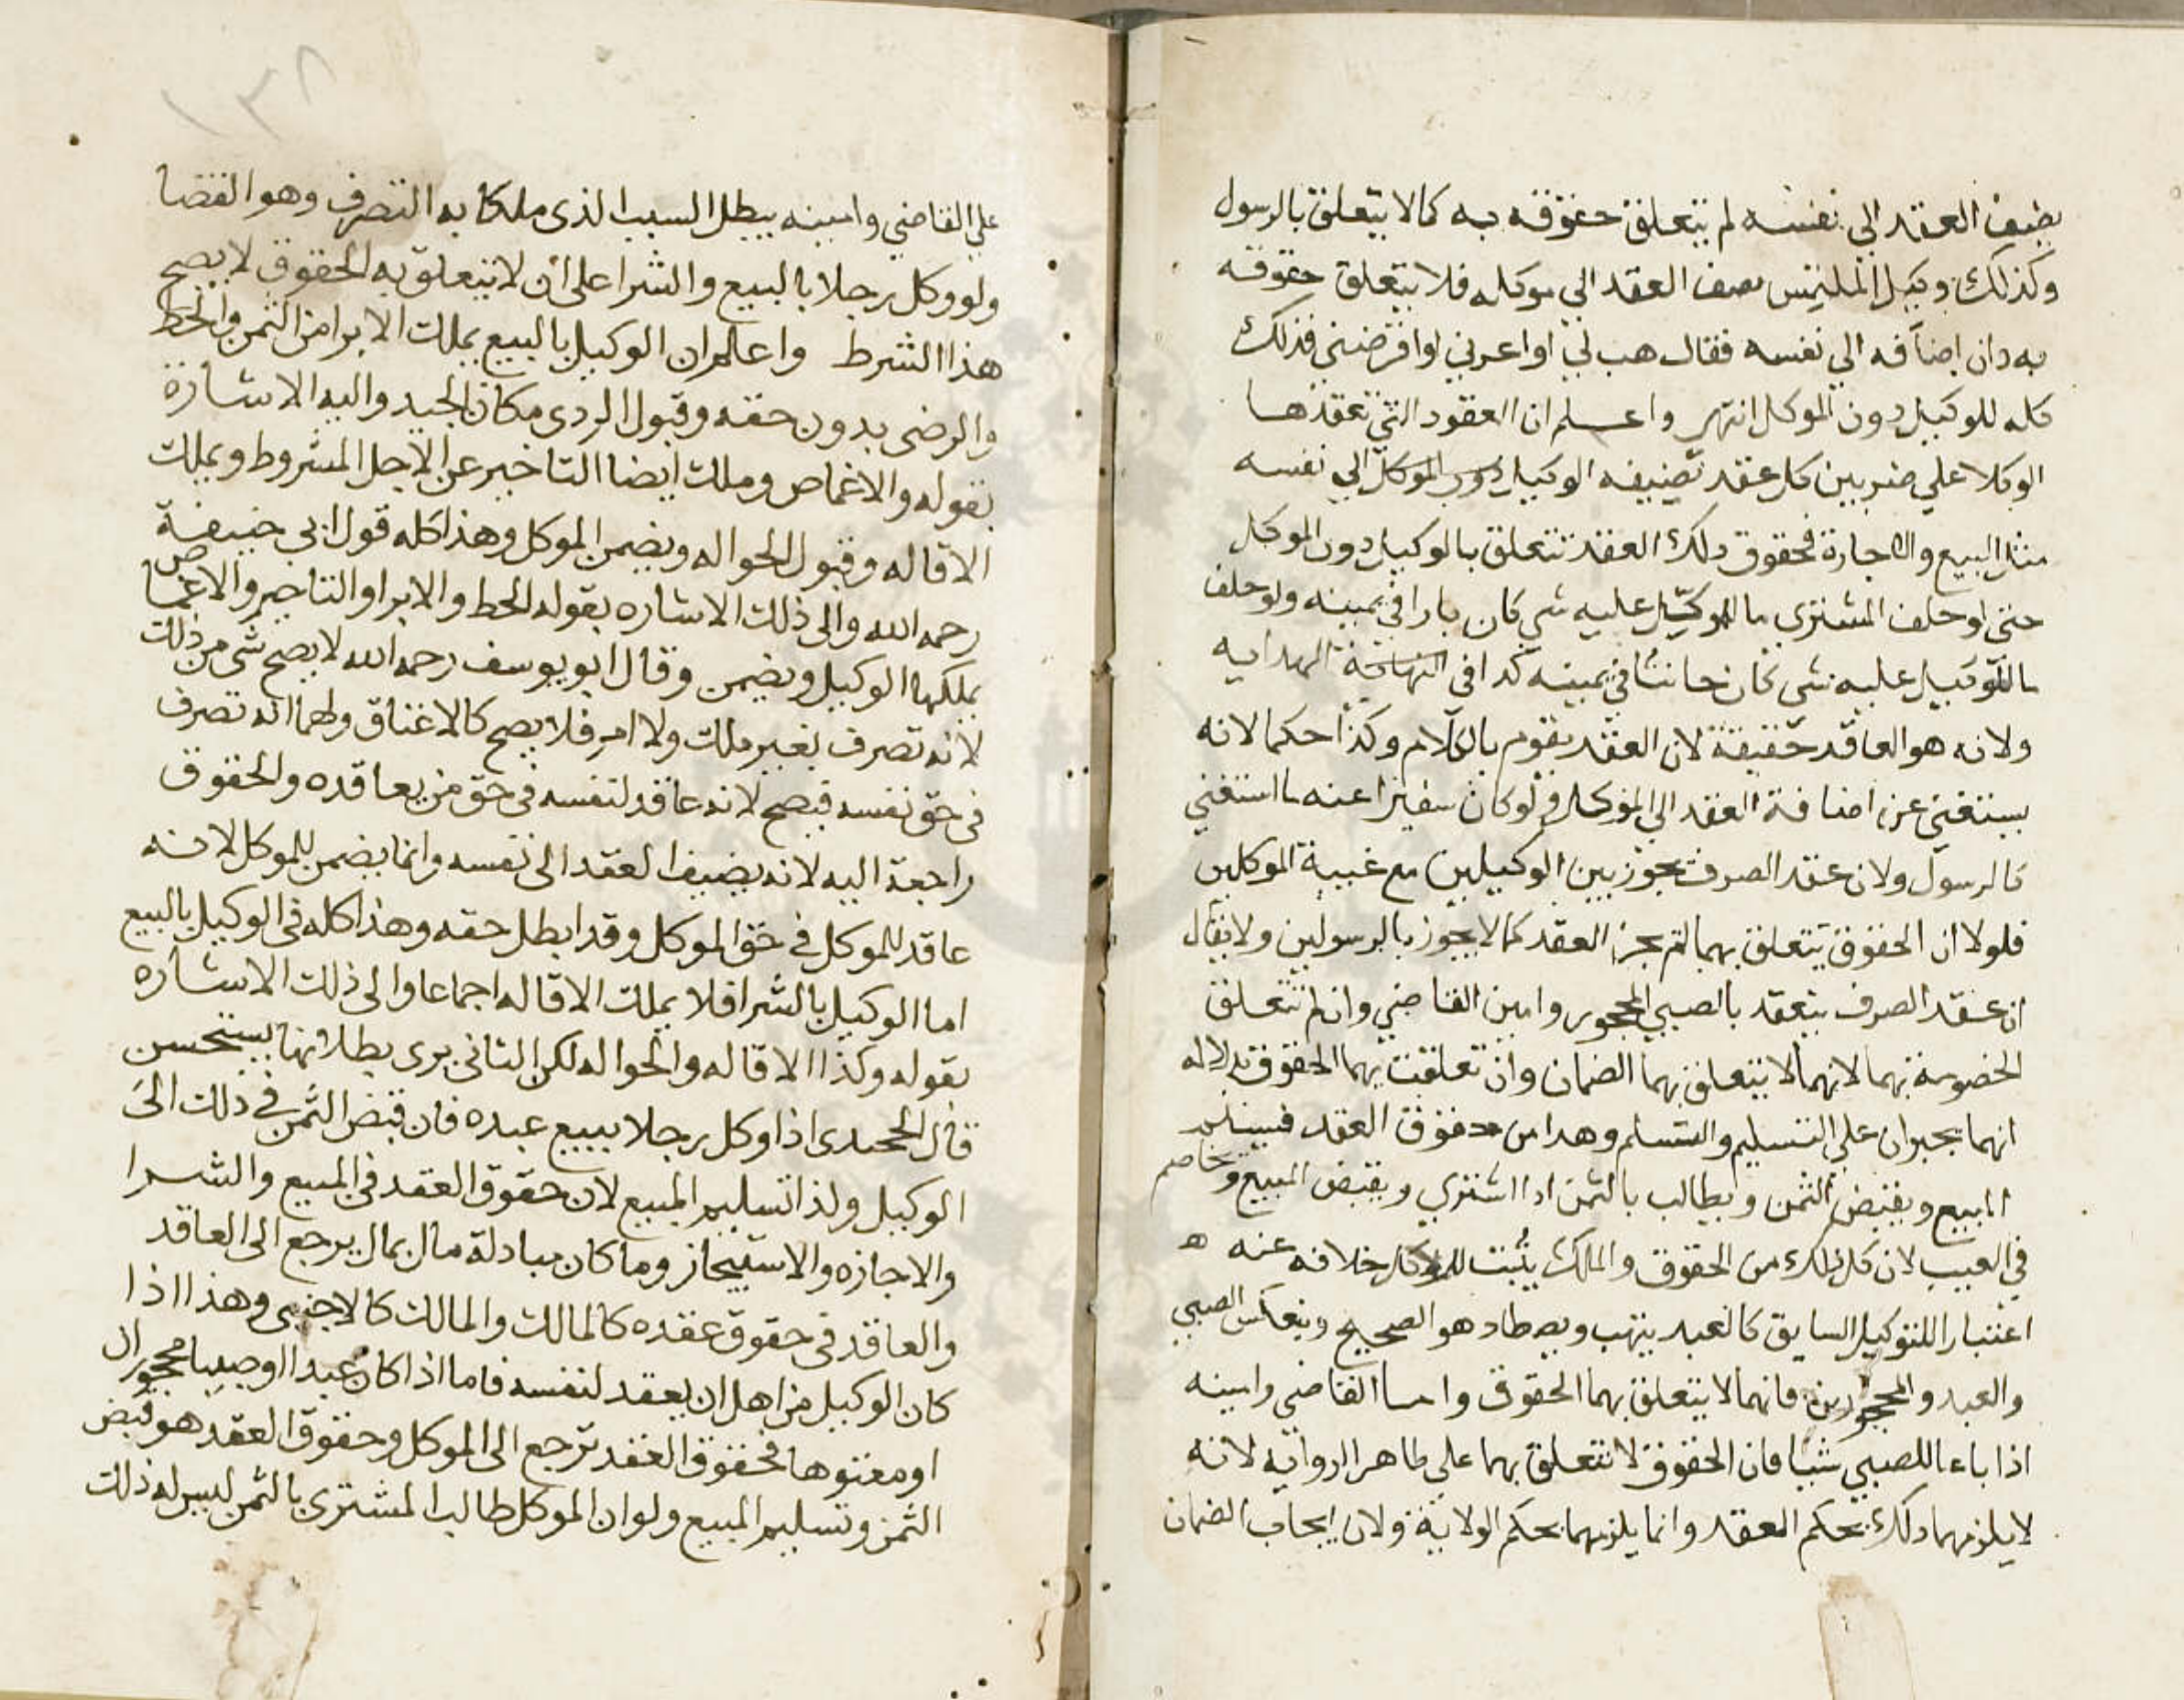 يضيف العقد الي نفسه لم يتعلق حقوقه به كما لا يتعلق بالرسول
وكذلك وكيل الملتمس يضف العقد الي موكله فلا يتعلق حقوقه
به وان اضافه الي نفسه فقال هب لي او اعرني او اقرضني فذلك
كله للوكيل دون الموكل انتهي واعلم ان العقود التي تعقدها
الوكلا علي ضربين كل عقد تضيفه الوكيل دون الموكل الي نفسه
مثل البيع والاجارة فحقوق ذلك العقد تتعلق بالوكيل دون الموكل
حتي لو حلف المشتري ما للموكل عليه شي كان بارا في يمينه ولو حلف
ما للوكيل عليه شي كان حانثا في يمينه كذا في الهداية
ولانه هو العاقد حقيقة لان العقد يقوم بالكلام وكذا حكما لانه
يستغني عن اضافة العقد الي الموكل ولو كان سفيرا عنه ما استغني
كالرسول ولان عقد الصرف يجوز بين الوكيلين مع غيبة الموكلين
فلولا ان الحقوق يتعلق بهما لم يجز العقد كما لا يجوز بالرسولين ولا يقال
ان عقد الصرف ينعقد بالصبي المحجور وامين القاضي وان لم تتعلق
الخصومة بهما لانهما لا يتعلق بهما الضمان وان تعلقت بهما الحقوق بدلاله
انهما يجبران علي التسليم والتسلم وهدا من حقوق العقد فيسلم
المبيع ويقبض الثمن ويطالب بالثمن اذا اشتري ويقبض المبيع ويخاصم
في العيب لان كل ذلك من الحقوق والملك يثبت للموكل خلافه عنه ه
اعتبارا للتوكيل السابق كالعبد يتهب ويصطاد هو الصحيح وينعكس الصبي
والعبد والمحجورين فانهما لا يتعلق بهما الحقوق واما القاضي وامينه
اذا باعا للصبي شيا فان الحقوق لا تتعلق بهما علي ظاهر الرواية لانه
لا يلزمهما ذلك بحكم العقد وانما يلزمهما بحكم الولاية ولان ايجاب الضمان
١٣٨
علي القاضي وامينه يبطل السبب الذي ملكا به التصرف وهو القضا
ولو وكل رجلا بالبيع والشرا على ان لا تتعلق به الحقوق لا يصح
هذا الشرط واعلم ان الوكيل بالبيع يملك الابرا من الثمن والحط
والرضى بدون حقه وقبول الردى مكان الجيد واليه الاشارة
بقوله والاغماص وملك ايضا التاخير عن الاجل المشروط ويملك
الاقاله وقبول الحواله ويضمن الموكل وهذا كله قول ابي حنيفة
رحمه الله والى ذلك الاشاره بقوله الحط والابرا والتاخير والاغماص
يملكها الوكيل ويضمن وقال ابو يوسف رحمه الله لا يصح شى من ذلك
لانه تصرف بغير ملك ولا امر فلا يصح كالاعتاق ولهما انه تصرف
في حق نفسه فيصح لانه عاقد لنفسه في حق من يعاقده والحقوق
راجعة اليه لانه يضيف العقد الى نفسه وانما يضمن للموكل لانه
عاقد للموكل في حق الموكل وقد ابطل حقه وهذا كله فى الوكيل بالبيع
اما الوكيل بالشرا فلا يملك الاقاله اجماعا والى ذلك الاشاره
بقوله وكذا الاقاله والحواله لكن الثاني يرى بطلانها يستحسن
قال اذا وكل رجلا ببيع عبده فان قبض الثمن في ذلك الى
الوكيل ولذا تسليم المبيع لان حقوق العقد في المبيع والشرا
والاجازه والاستيجاز وما كان مبادلة مال بمال يرجع الى العاقد
والعاقد فى حقوق عقده كالمالك والمالك كالاجنبى وهذا اذا
كان الوكيل من اهل ان يعقد لنفسه فاما اذا كان عبدا او صبيا محجورا
او معتوها فحقوق العقد ترجع الى الموكل وحقوق العقد هو قبض
الثمن وتسليم المبيع ولو ان الموكل طالب المشترى بالثمن ليس له ذلك